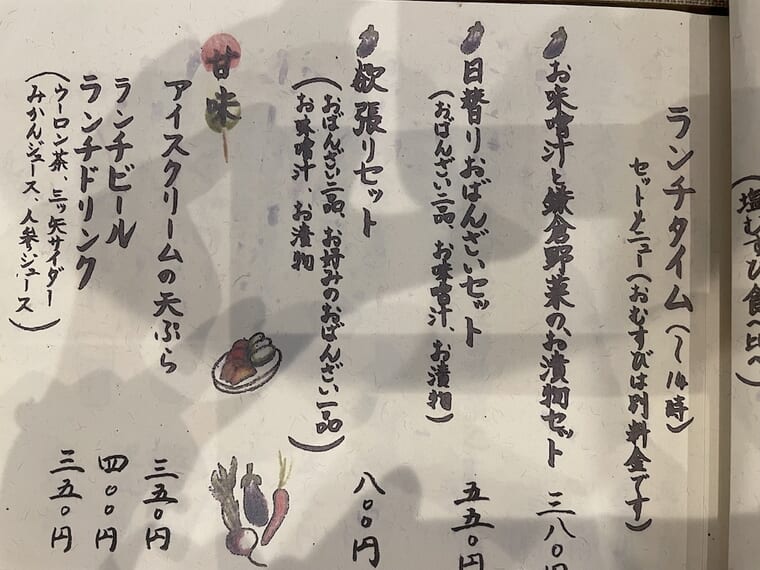 (塩むすび食べ比べ)
ランチタイム(〜14時)
セットメニュー(おむすびは別料金です)
お味噌汁と鎌倉野菜のお漬物セット 三八〇円
日替りおばんざいセット 五五〇円
(おばんざい二品、お味噌汁、お漬物)
欲張りセット 八〇〇円
(おばんざい二品、お好みのおばんざい一品
お味噌汁、お漬物)
甘味
アイスクリームの天ぷら 三五〇円
ランチビール 四〇〇円
ランチドリンク 三五〇円
(ウーロン茶、三ッ矢サイダー
みかんジュース、人参ジュース)